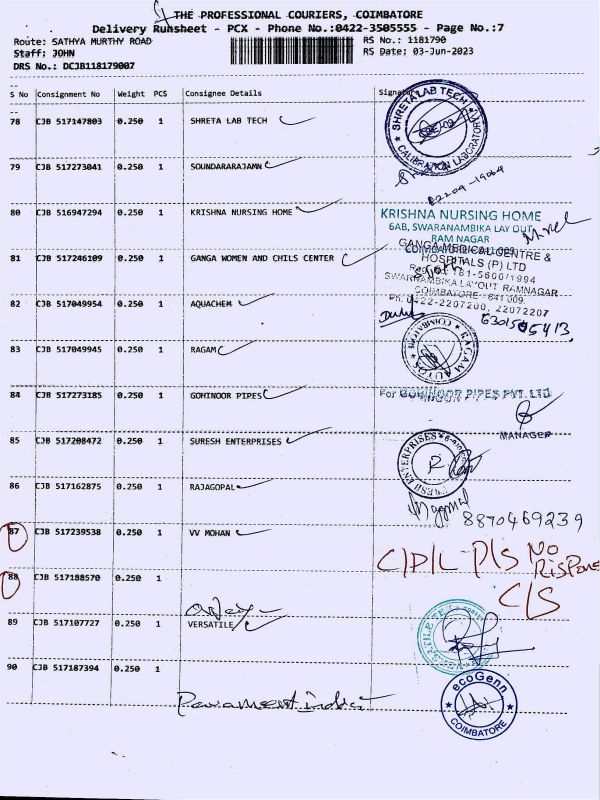 THE PROFESSIONAL COURIERS, COIMBATORE
Delivery Runsheet - PCX - Phone No.:0422-3505555 - Page No.:7
Route: SATHYA MURTHY ROAD
RS No.: 1181790
Staff: JOHN
RS Date: 03-Jun-2023
DRS No.: DCJB118179007
S No Consignment No Weight PCS Consignee Details Signature
78 CJB 517147803 0.250 1 SHRETA LAB TECH
SHRETA LAB TECH
CALIBRATION LABORATORY
79 CJB 517273041 0.250 1 SOUNDARARAJAMN
80 CJB 516947294 0.250 1 KRISHNA NURSING HOME
KRISHNA NURSING HOME
6AB, SWARANAMBIKA LAY OUT
RAM NAGAR
81 CJB 517246109 0.250 1 GANGA WOMEN AND CHILS CENTER
GANGA MEDICAL CENTRE &
HOSPITALS (P) LTD
SWARNAMBIKA LAYOUT RAMNAGAR
COIMBATORE - 641 009.
PH: 0422-2207200, 22072207
82 CJB 517049954 0.250 1 AQUACHEM
83 CJB 517049945 0.250 1 RAGAM
RAGAM AUTOS
COIMBATORE
84 CJB 517273185 0.250 1 GOHINOOR PIPES
For GOHINOOR PIPES PVT. LTD
MANAGER
85 CJB 517208472 0.250 1 SURESH ENTERPRISES
86 CJB 517162875 0.250 1 RAJAGOPAL
8870469239
87 CJB 517239538 0.250 1 VV MOHAN
C/D/L - P/S No
Response
88 CJB 517188570 0.250 1
C/S
89 CJB 517107727 0.250 1 VERSATILE
90 CJB 517187394 0.250 1
ecoGenn
COIMBATORE